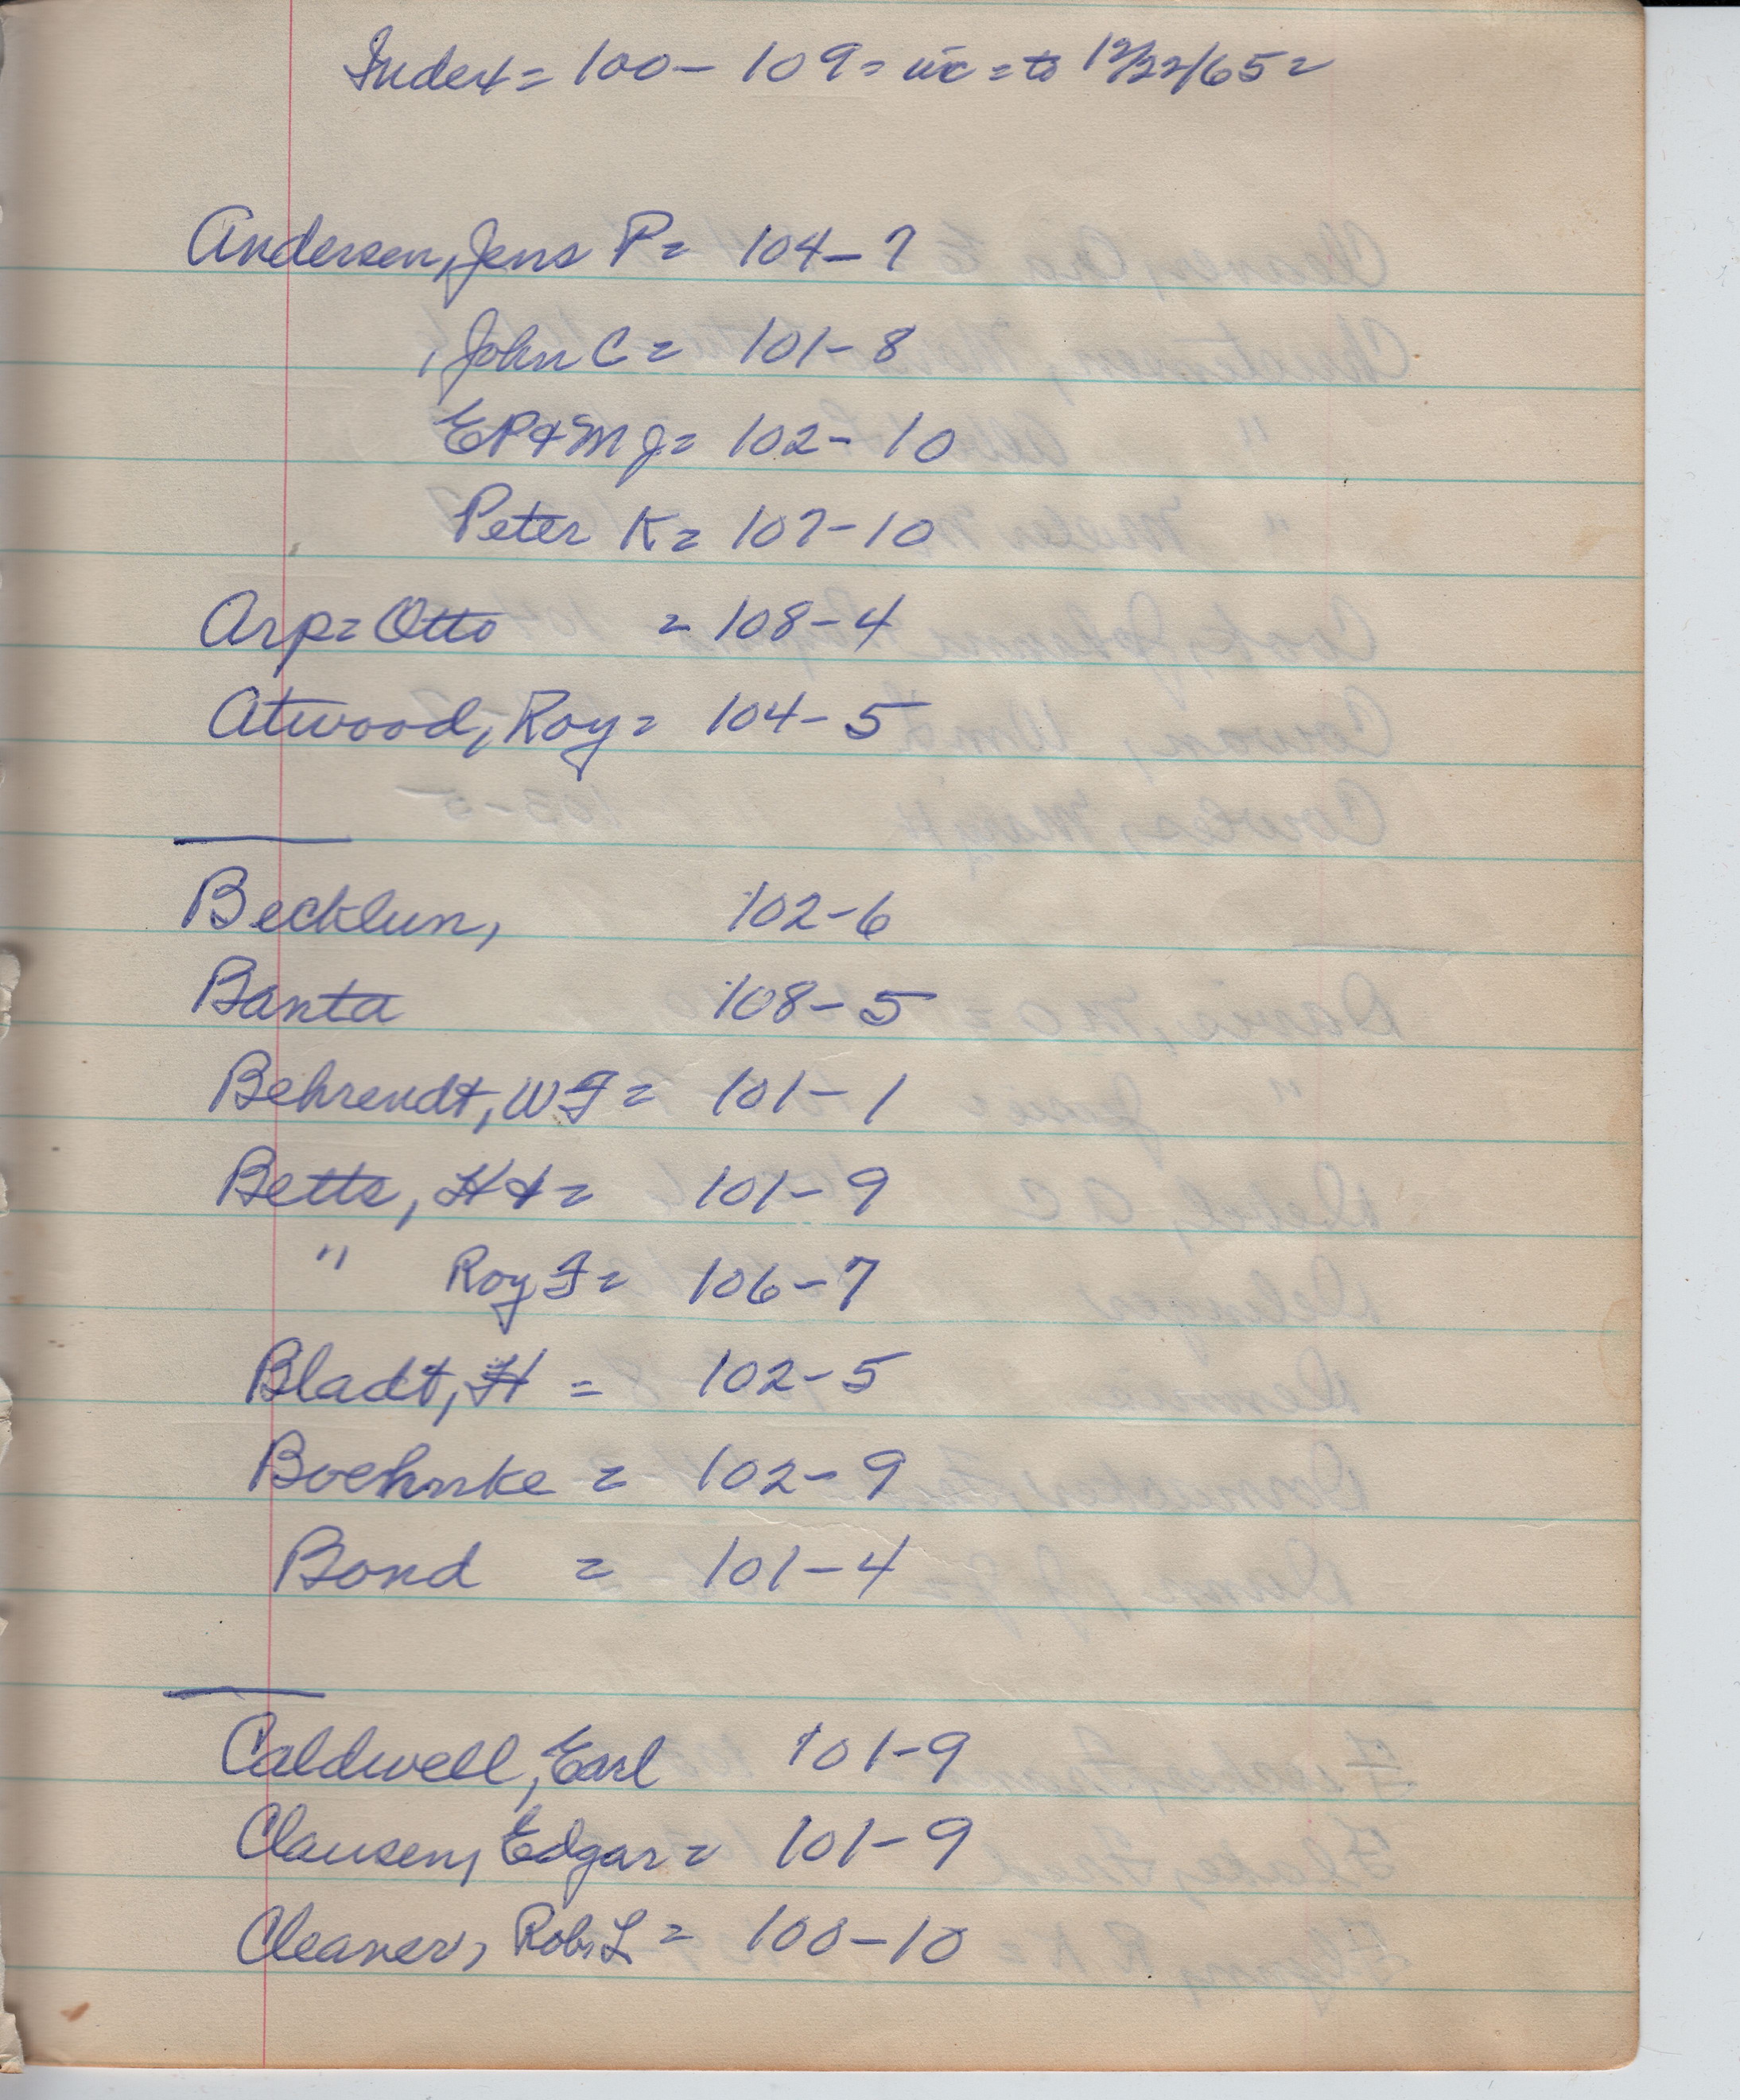 Index = 100 - 109 = inc = to 12/22/65 =
Andersen, Jens P = 104-7
, John C = 101-8
EP & M J = 102-10
Peter K = 107-10
Arp = Otto = 108-4
Atwood, Roy = 104-5
Becklun, 102-6
Banta 108-5
Behrendt, W F = 101-1
Betts, H = 101-9
" Roy F = 106-7
Bladt, H = 102-5
Boehnke = 102-9
Bond = 101-4
Caldwell, Earl 101-9
Clausen, Edgar = 101-9
Cleaver, Rob. L = 100-10